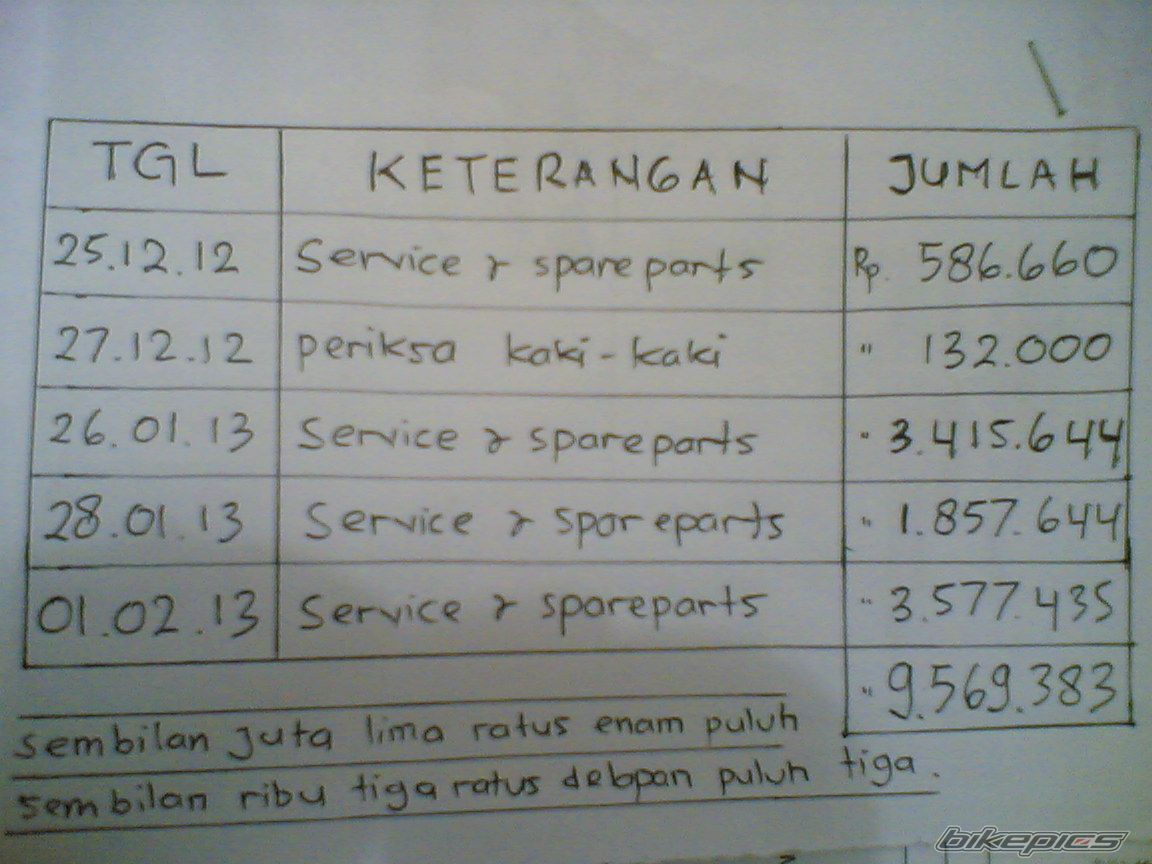 TGL KETERANGAN JUMLAH
25.12.12 Service & spareparts Rp. 586.660
27.12.12 periksa kaki-kaki " 132.000
26.01.13 Service & spareparts " 3.415.644
28.01.13 Service & spareparts " 1.857.644
01.02.13 Service & spareparts " 3.577.435
" 9.569.383
sembilan juta lima ratus enam puluh
sembilan ribu tiga ratus delapan puluh tiga.
bikepics